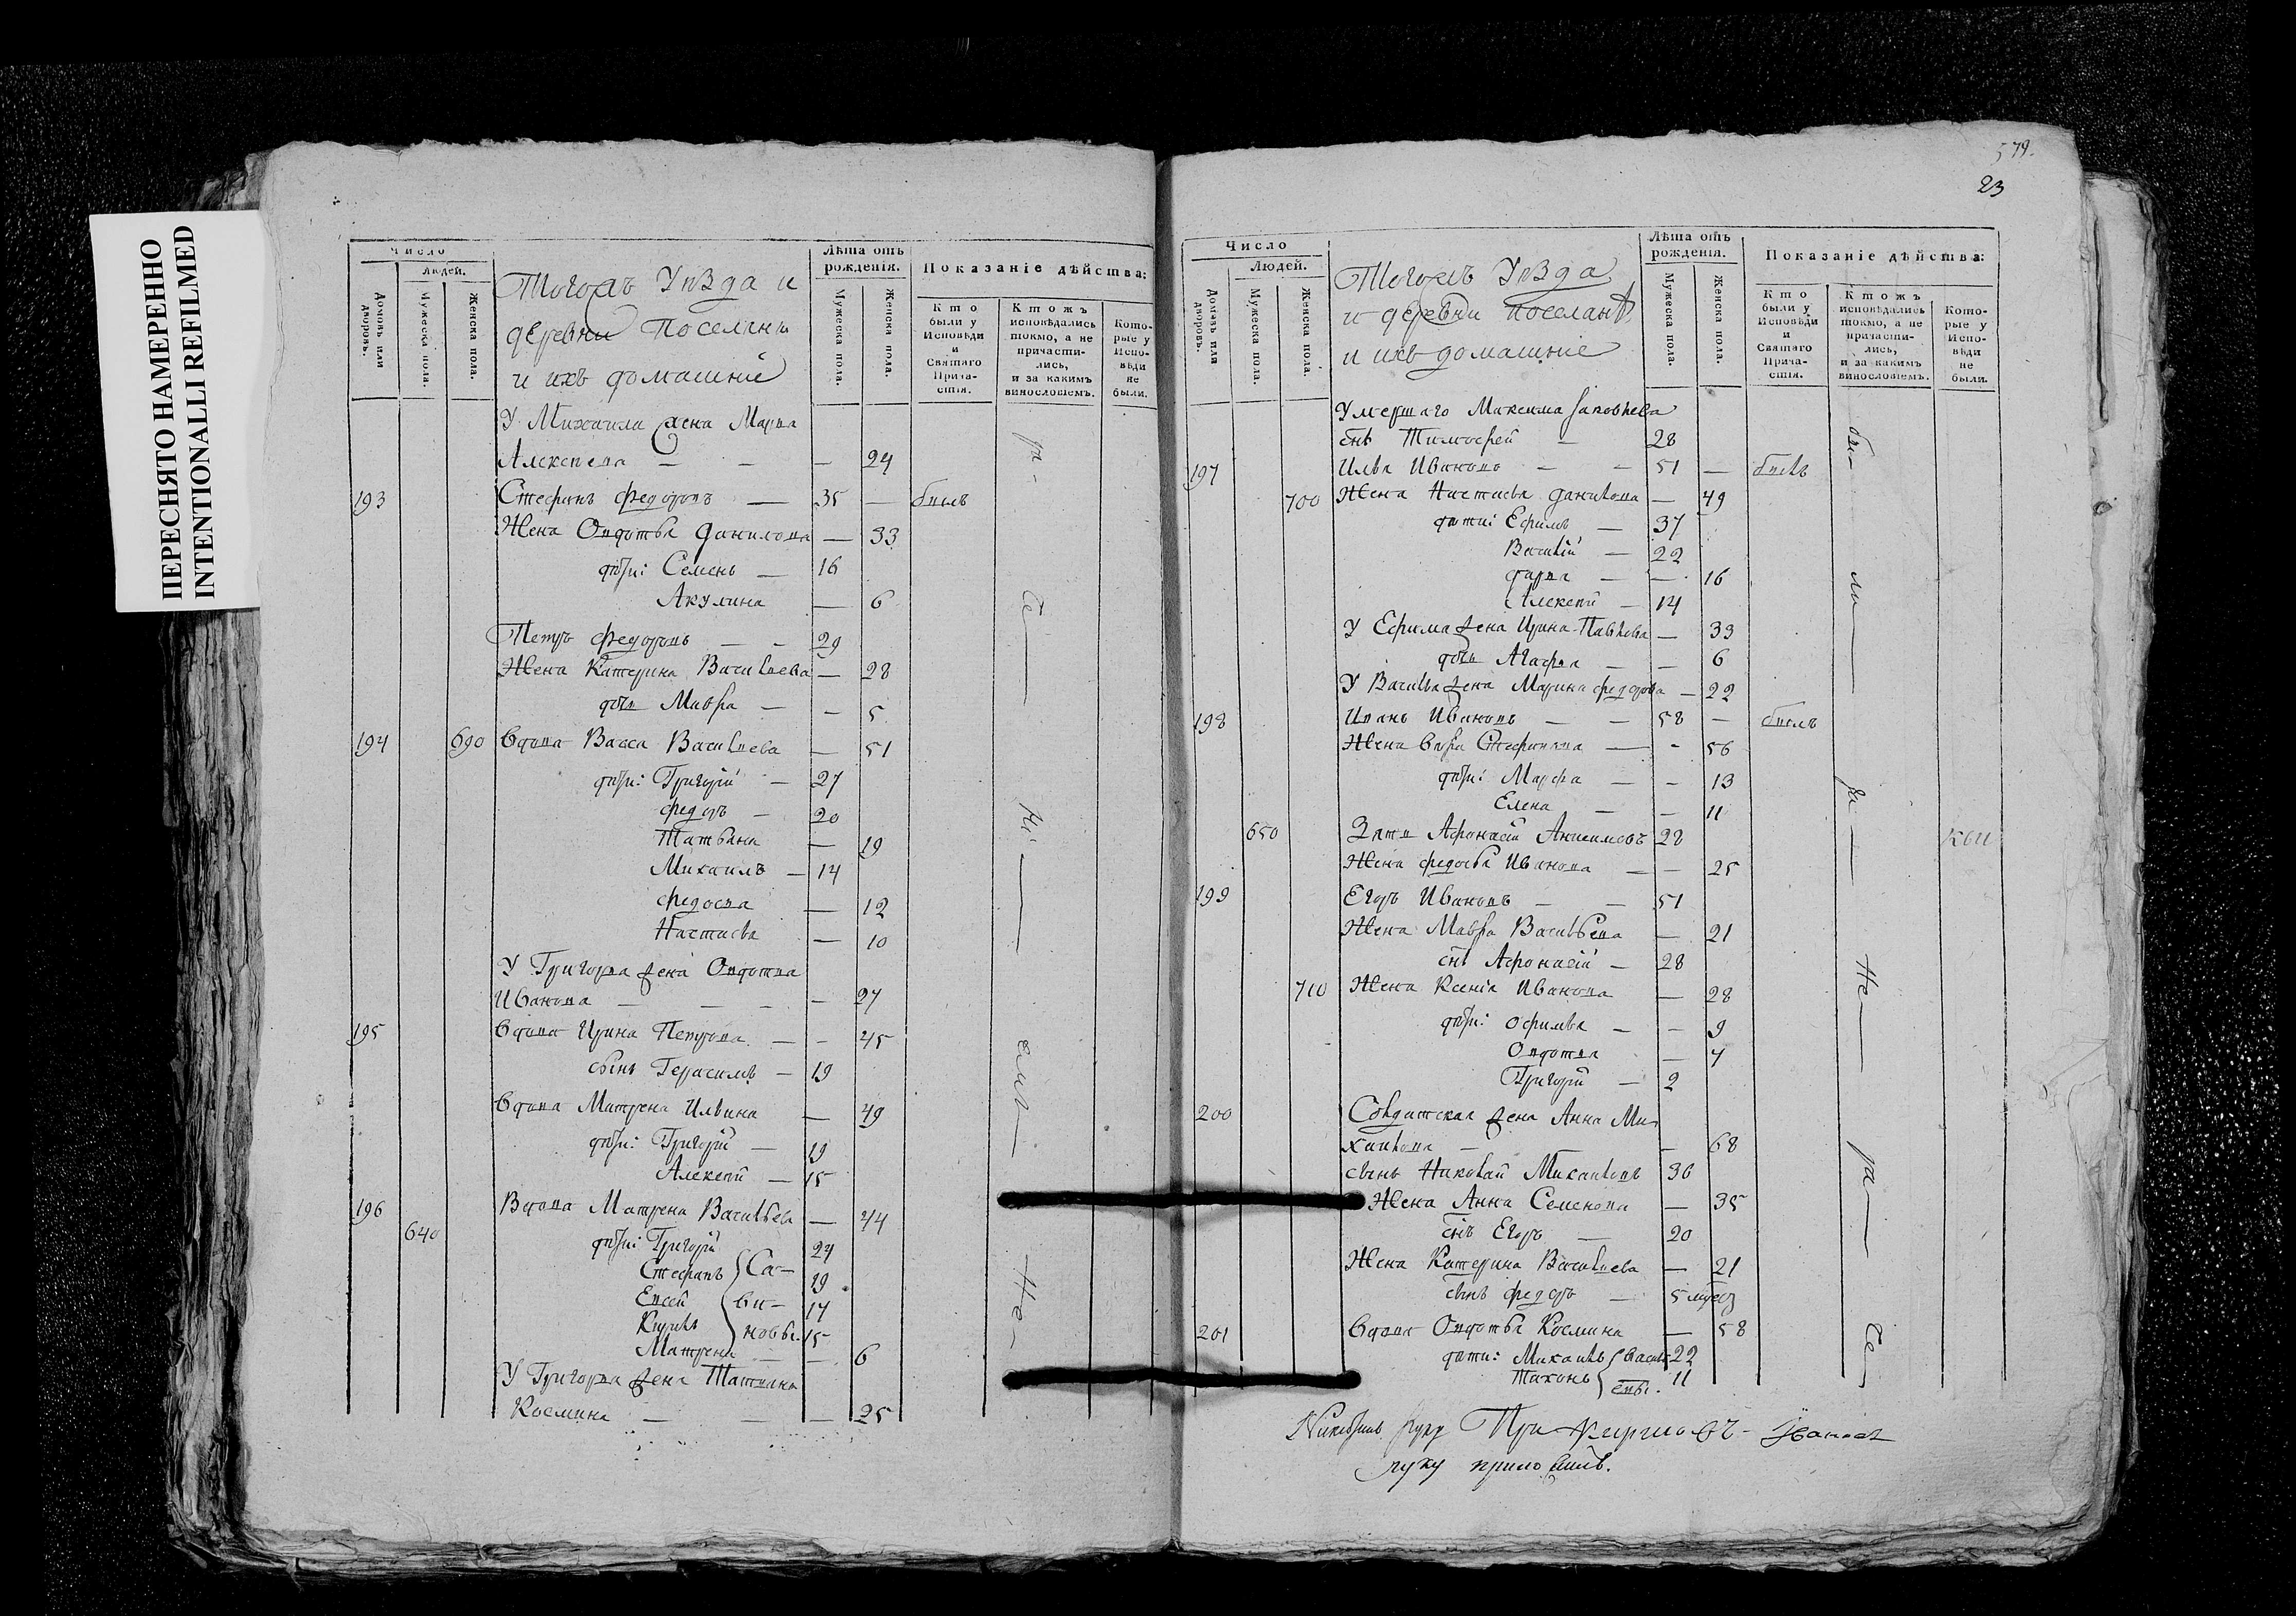 ПЕРЕСНЯТО НАМЕРЕННО
INTENTIONALLI REFILMED
Число
Людей.
Домовъ или дворовъ.
Мужеска пола.
Женска пола.
Тогожъ Уѣзда и
деревни поселяня
и ихъ домашніе
Лѣта отъ рожденія.
Мужеска пола.
Женска пола.
Показаніе дѣйства:
Кто были у Исповѣди и Святаго Прича-стія.
Ктожъ исповѣдались токмо, а не причасти-лись, и за какимъ винословіемъ.
Кото-рые у Испо-вѣди не были.
У Михаила жена Марѳа
Алексѣева — — — 24
193 Стефанъ Федоровъ — 35 — былъ
Жена Овдотья Данилова — 33
дѣти: Семенъ — 16
Акулина — 6
Петръ Федоровъ — — 29
Жена Катерина Васильева — 28
дочь Мавра — — 5
194 690 Вдова Васса Васильева — 51
дѣти: Григорій — 27
Федоръ — 20
Татьяна — 19
Михаилъ — 14
Федосья — 12
Настасья — 10
У Григорья жена Овдотья
Иванова — — — — 27
195 Вдова Ирина Петрова — — 45
сынъ Герасимъ — 19
Вдова Матрена Ильина — 49
дѣти: Григорій — 19
Алексѣй — 15
196 Вдова Матрена Васильева — 44
640 дѣти: Григорій 24
Стефанъ 19
Евсей 17
Кирилъ 15
Матрена — — 6
У Григорья жена Татьяна
Космина — — — 25
579.
23
Число
Людей.
Домовъ или дворовъ.
Мужеска пола.
Женска пола.
Тогожъ Уѣзда
и деревни поселянѣ
и ихъ домашніе
Лѣта отъ рожденія.
Мужеска пола.
Женска пола.
Показаніе дѣйства:
Кто были у Исповѣди и Святаго Прича-стія.
Ктожъ исповѣдались токмо, а не причасти-лись, и за какимъ винословіемъ.
Кото-рые у Испо-вѣди не были.
Умершаго Максима Яковлева
снъ Тимофей — 28
197 Илья Ивановъ — — 51 — былъ
700 Жена Настасья Данилова — 49
дѣти: Ефимъ — 37
Василій — 22
Дарья — — 16
Алексѣй — 14
У Ефима жена Ирина Павлова — 33
дочь Агафья — — 6
У Василья жена Марина Федорова — 22
198 Иванъ Ивановъ — — 58 — былъ
Жена Стефанова — - 56
дѣти: Марфа — — 13
Елена — — 11
650 Зять Афонасій Анисимовъ 28
Жена Федосья Иванова — — 25
199 Егоръ Ивановъ — — 51
Жена Мавра Васильева — 21
снъ Афонасій — 28
710 Жена Ксенія Иванова — 28
дѣти: Офимья — — 9
Овдотья — 4
Григорій — 2
200 Солдатская жена Анна Ми-
хайлова — — 68
сынъ Николай Михайловъ 36
Жена Анна Семенова — 35
снъ Егоръ — 20
Жена Катерина Васильева — 21
сынъ Федоръ — 5
201 Вдова Овдотья Космина — 58
дѣти: Михаилъ 22
Тихонъ 11
руку приложилъ.